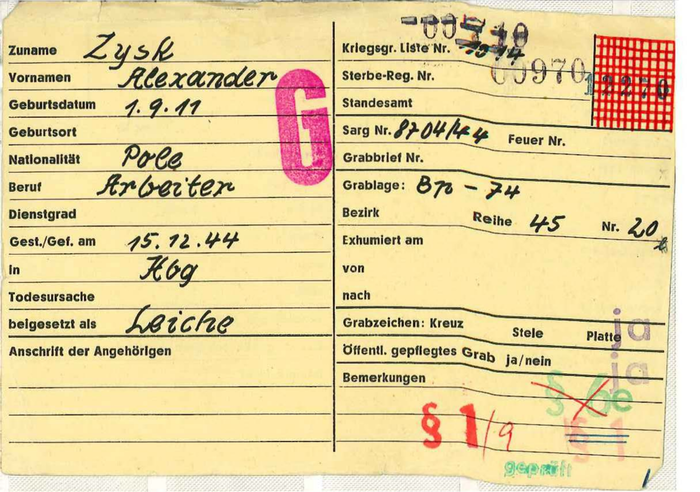 Zuname Zysk
Vornamen Alexander
Geburtsdatum 1.9.11
Geburtsort
Nationalität Pole
Beruf Arbeiter
Dienstgrad
Gest./Gef. am 15.12.44
In Hbg
Todesursache
beigesetzt als Leiche
Anschrift der Angehörigen
G
Kriegsgr. Liste Nr.
Sterbe-Reg. Nr. 00970
12270
Standesamt
Sarg Nr. 8704/44 Feuer Nr.
Grabbrief Nr.
Grablage: Bp - 74
Bezirk Reihe 45 Nr. 20
Exhumiert am
von
nach
Grabzeichen: Kreuz Stele Platte ja
Öffentl. gepflegtes Grab ja/nein ja
Bemerkungen
§ 6e
§ 1/9 § 1
geprüft